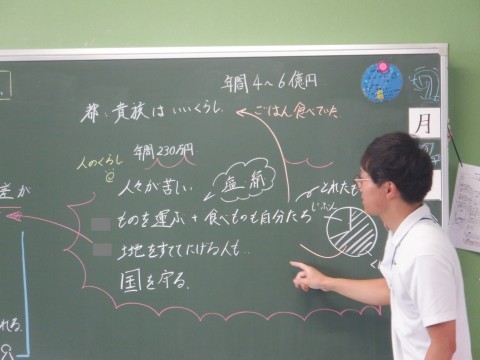 年間4〜6億円
都：貴族はいいくらし
ごはん食べていた
月
人のくらし
年間230万円
人々が苦しい
塩 紙
とれたお
じぶん
ものを運ぶ+食べものも自分たち
差が
土地をすててにげる人も‥
国を守る.
れる.